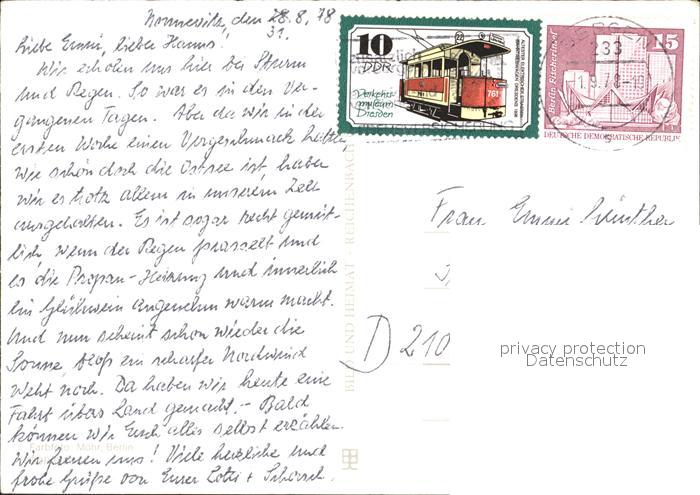 Nonnewitz, den 28.8.78
31.
Liebe Emmi, lieber Hanns!
Wir erholen uns hier bei Sturm
und Regen. So war es in den Ver-
gangenen Tagen. Aber da wir in der
ersten Woche einen Vorgeschmack hatten
wie schön doch die Ostsee ist, haben
wir es trotz allem in unserem Zelt
ausgehalten. Es ist sogar recht gemüt-
lich, wenn der Regen prasselt und
es die Propan-Heizung und innerlich
ein Glühwein angenehm warm macht.
Und nun scheint schon wieder die
Sonne, bloß ein scharfer Nordwind
weht noch. Da haben wir heute eine
Fahrt übers Land gemacht. – Bald
können wir Euch alles selbst erzählen.
Wir freuen uns! Viele herzliche und
frohe Grüße von Eurer Lotti +
Farbfoto: Mohr, Berlin
BILD UND HEIMAT REICHENBACH
10
DDR
Verkehrs-
museum
Dresden
761
22
15
Berlin Fischerinsel
DEUTSCHE DEMOKRATISCHE REPUBLIK
233
Frau Emmi Günther
D 210
privacy protection
Datenschutz